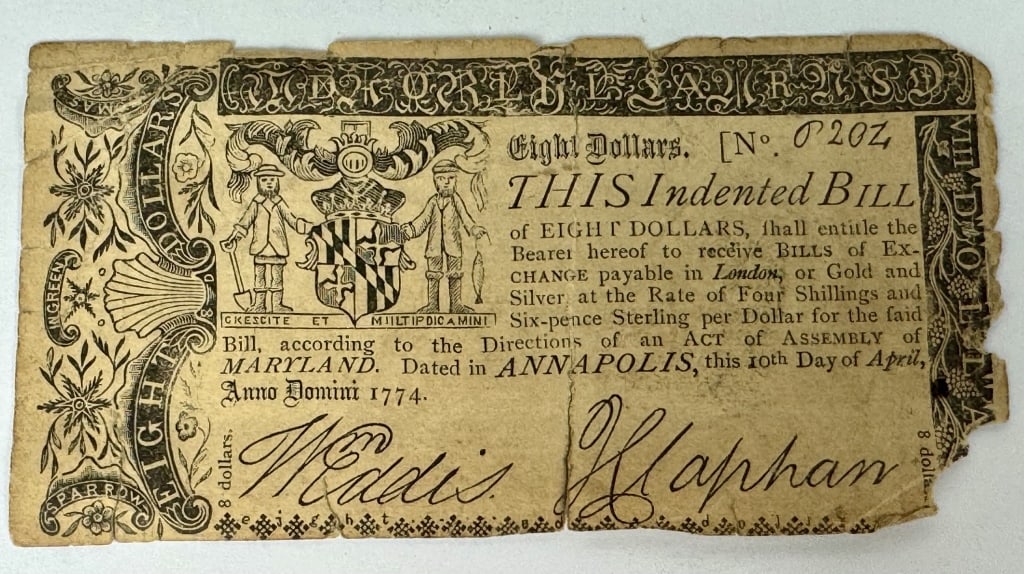 Eight Dollars. [No. 6202
THIS Indented BILL
of EIGHT DOLLARS, ſhall entitle the
Bearer hereof to receive BILLS of Ex-
CHANGE payable in London, or Gold and
Silver at the Rate of Four Shillings and
Six-pence Sterling per Dollar for the ſaid
Bill, according to the Directions of an ACT of ASSEMBLY of
MARYLAND. Dated in ANNAPOLIS, this 10th Day of April,
Anno Domini 1774.
CRESCITE ET MULTIPLICAMINI
Wm Eddis. J Clapham
EIGHT DOLLARS
SPARROW
IN GREEN
MAS
8 dollars.
8 dolla
eight dollars